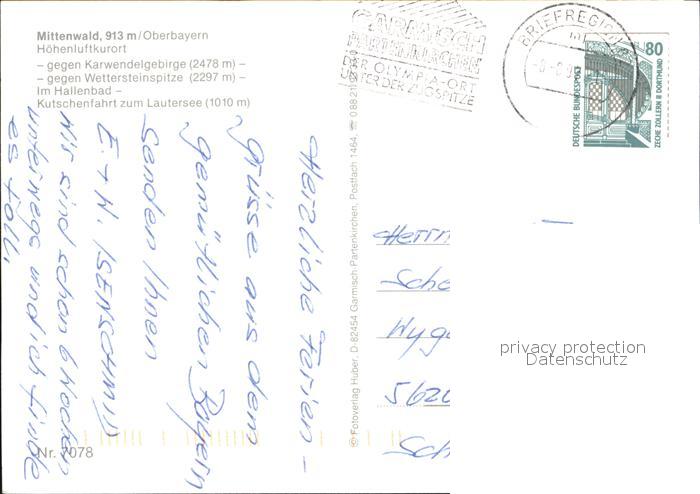 Mittenwald, 913 m/Oberbayern
Höhenluftkurort
– gegen Karwendelgebirge (2478 m) –
– gegen Wettersteinspitze (2297 m) –
Im Hallenbad –
Kutschenfahrt zum Lautersee (1010 m)
GARMISCH
PARTENKIRCHEN
DER OLYMPIA-ORT
UNTER DER ZUGSPITZE
BRIEFREGION
80
DEUTSCHE BUNDESPOST
ZECHE ZOLLERN II DORTMUND
Herzliche Ferien –
grüsse aus dem
gemütlichen Bayern
senden Ihnen
E. + W. ISENSCHMID
Wir sind schon 6 Wochen
unterwegs und ich finde
es toll.
© Fotoverlag Huber, D-82454 Garmisch-Partenkirchen, Postfach 1464,
Herrn
Sche
Wyg
5620
Sch
privacy protection
Datenschutz
Nr. 7078